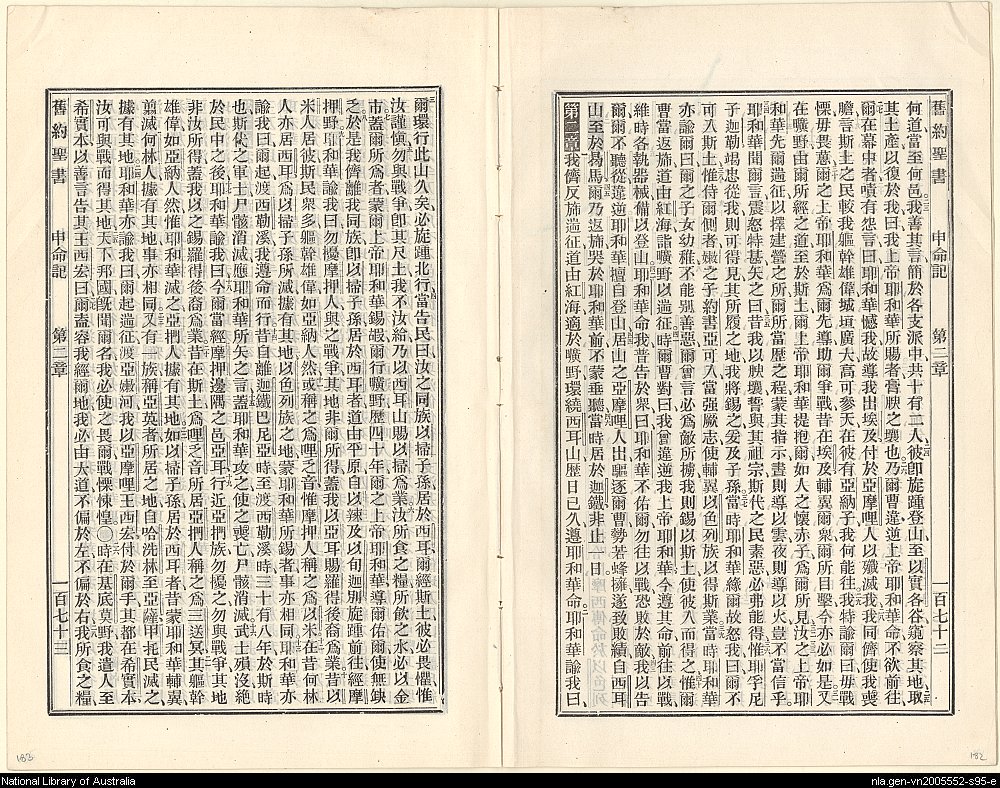 舊約聖書 申命記 第二章 一百七十二
何道當至何邑我善其言簡於各支派中共十有二人彼卽旋踵登山至以實各谷窺察其地取
其土產以復於我曰我上帝耶和華所賜者膏腴之壤也乃爾曹違逆上帝耶和華命不欲前往
爾在幕中者嘖有怨言曰耶和華憾我故導我出埃及付於亞摩哩人以殲滅我我同儕使我喪
膽言斯土之民較我軀幹雄偉城垣廣大高可參天在彼有亞納子我何能往我特諭爾曰毋戰
慄毋畏葸爾之上帝耶和華爲爾先導助爾爭戰昔在埃及輔翼爾衆爾所目擊今亦必如是又
在曠野由爾所經之道至於斯土爾上帝耶和華提抱爾如人之懷赤子爲爾所見汝之上帝耶
和華先爾遄征以擇建營之所爾所當歷之程蒙其指示晝則導以雲夜則導以火豈不當信乎
耶和華聞爾言震怒特甚矢之曰昔我以腴壤誓與其祖宗斯代之民素惡必弗能得惟耶孚尼
子迦勒竭忠從我則可得見其所履之地我將錫之爰及子孫當時耶和華緣爾故怒我曰爾不
可入斯土惟侍爾側者嫩之子約書亞可入當强厥志使輔翼以色列族以得斯業當時耶和華
亦諭爾曰爾之子女幼稚不能別善惡爾曾言必爲敵所擄我則錫以斯土使彼入而得之惟爾
曹當返斾遄道由紅海詣曠野以遄征時爾曹對曰我曾違逆我上帝耶和華今遵其命前往以戰
維時各執器械備以登山耶和華命我普告於衆曰耶和華不佑爾勿往以戰恐敗於敵我以告
爾爾不聽從違逆耶和華擅自登山居山之亞摩哩人出驅逐爾曹勢若蜂擁遂致敗績自西耳
山至於曷馬爾乃返斾哭於耶和華前不蒙垂聽當時居於迦鐵非止一日
第二章我儕反斾遄征道由紅海適於曠野環繞西耳山歷日已久遵耶和華命耶和華諭我曰
爾環行此山久矣必旋踵北行當告民曰汝之同族以掃子孫居於西耳爾經斯土彼必畏懼惟
汝謹慎勿與戰爭卽其尺土我不汝給乃以西耳山賜以掃爲業汝所食之糧所飲之水必以金
市蓋爾所爲者蒙爾上帝耶和華錫嘏爾行曠野歷四十年爾之上帝耶和華導爾佑爾使無缺
之於是我儕離我同族卽以掃子孫居於西耳者道由平原自以辣及以旬迦別旋踵前往經摩
押野耶和華諭我曰勿擾摩押人與之戰爭其地非爾所得蓋我以亞耳賜羅得後裔爲業昔以
米人居彼斯民衆多軀幹雄偉如亞納人然或稱之爲哩乏音惟摩押人稱之爲以米在昔何林
人亦居西耳爲以掃子孫所滅據有其地以色列族之地蒙耶和華所錫者事亦相同耶和華亦
諭我曰爾起渡西勒溪我遵命而行昔自離迦鐵巴尼亞時至渡西勒溪時三十有八年於斯時
也斯代之軍士尸骸消滅應耶和華所矢之言蓋耶和華攻之使之喪亡尸骸消滅武士殞沒絶
於民中之後耶和華諭我曰今爾當經摩押邊隅之邑亞耳行近亞捫族勿擾之勿與戰爭其地
非汝所得蓋我以之錫羅得後裔爲業昔在斯土爲哩乏音所居亞捫人稱之爲三送冥其軀幹
雄偉如亞納人然惟耶和華滅之亞捫人據有其地如以掃子孫居於西耳者昔蒙耶和華輔翼
翦滅何林人據有其地事亦相同又有一族稱亞英者所居之地自哈洗林至亞薩甲托民滅之
據有其地耶和華亦諭我曰爾起遄征渡亞嫩河我以亞摩哩王西宏付於爾手其都在希實本
汝可與戰而得其地天下邦國旣聞爾名我必使之畏爾戰慄悚惶〇時在基底莫野我遣人至
希實本以善言告其王西宏曰爾盍容我經爾地我必由大道不偏於左不偏於右我所食之糧
舊約聖書 申命記 第二章 一百七十三
183
182
National Library of Australia
nla.gen-vn2005552-s95-e